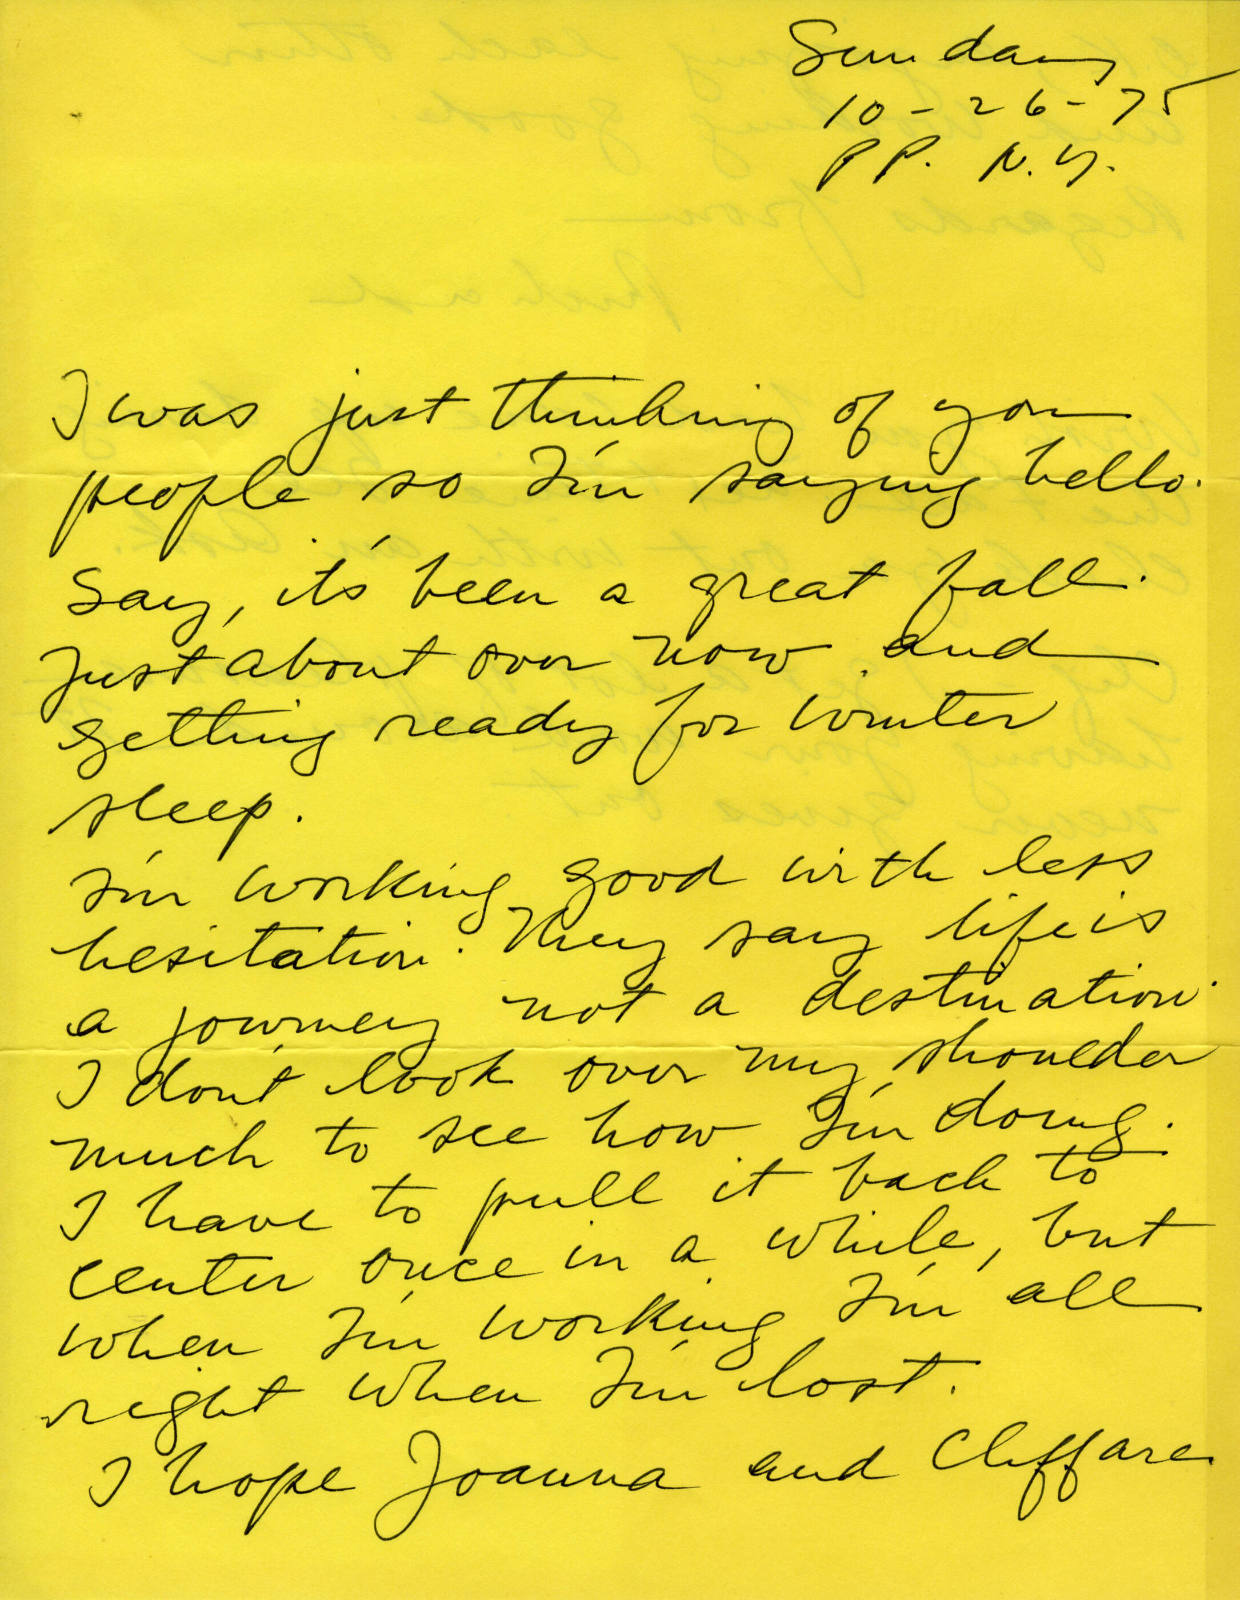 Sunday
10-26-75
P P. N.Y.
I was just thinking of you
people so I'm saying hello.
Say, it's been a great fall.
Just about over now and
getting ready for winter
sleep.
I'm working good with less
hesitation. They say life is
a journey not a destination.
I don't look over my shoulder
much to see how I'm doing.
I have to pull it back to
center once in a while, but
when I'm working I'm all
right when I'm lost.
I hope Joanna and Cliff are